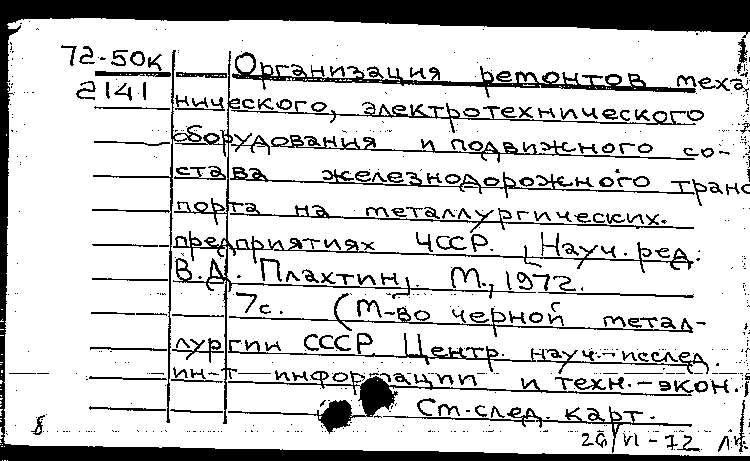 72-50к Организация ремонтов меха
2141 нического, электротехнического
оборудования и подвижного со-
става железнодорожного транс
порта на металлургических.
предприятиях ЧССР. [Науч.ред.:
В.Д. Плахтин]. М., 1972.
7с. (М-во черной метал-
лургии СССР Центр. науч.-исслед.
ин-т информации и техн.-экон.
См. след. карт.
8
VI-72